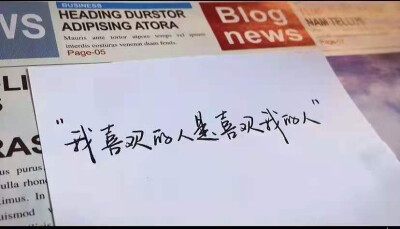 WS
BUSINESS
HEADING DURSTOR
ADIPISING ATORA
Mauris ante tortor atpsan tempo vel ipsum
interdis costuras venenat duain fensu.
Page-05
Blog
news
NAM TELLUS
"我喜欢的人是喜欢我的人"
LI
RAS
us purus
ulla rhon
imus. In
uismod